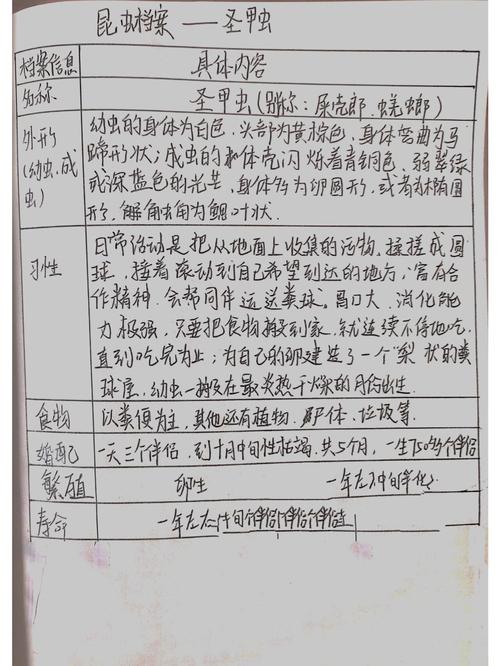 昆虫档案——圣甲虫
档案信息 具体内容
名称 圣甲虫(别称:屎壳郎、蜣螂)
外形(幼虫、成虫) 幼虫的身体为白色,头部为黄棕色,身体弯曲为马
蹄形状;成虫的体壳闪烁着青铜色,翡翠绿
或深蓝色的光芒,身体多为卵圆形,或者为椭圆
形,触角为鳃叶状.
习性 日常活动是把从地面上收集的污物,揉搓成圆
球,接着滚动到自己希望到达的地方;富有合
作精神,会帮同伴运送粪球。胃口大,消化能
力极强,只要把食物搬到家,就连续不停地吃,
直到吃完为止;为自己的卵建造了一个"梨"状的粪
球屋,幼虫一般在最炎热干燥的月份出生.
食物 以粪便为主,其他还有植物、尸体、垃圾等.
婚配 一天三个伴侣,到十月中旬性枯竭,共5个月,一生450多个伴侣
繁殖 卵生 一年左右
寿命 一年左右